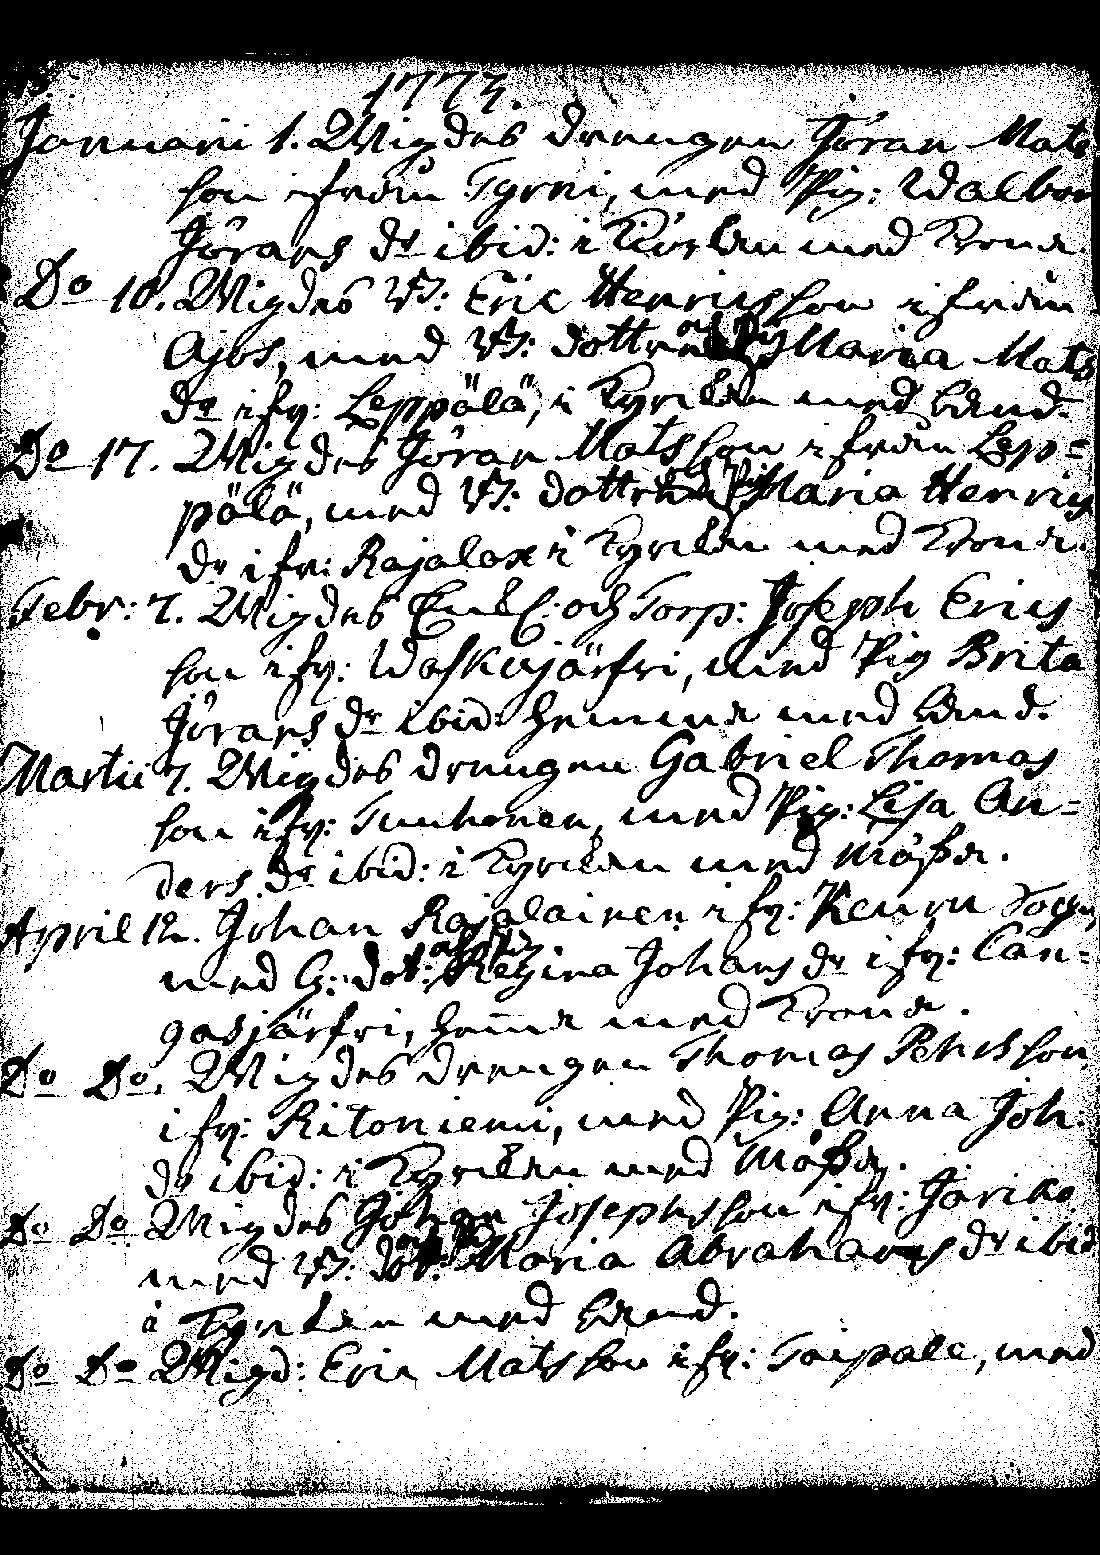 1773.
Januarii 1. Wigdes drengen Jöran Mats
son ifrån Tyrni, med Pig: Walbor
Jörans dr ibid: i Kiörkan med Krona
Do 10. Wigdes B: Eric Henricsson ifrån
Ajos, med B: dottren Maria Mats
dr ifr: Leppälä, i Kyrckan med band.
Do 17. Wigdes Jöran Matsson ifrån Lep=
pälä, med B: dottren Maria Henrics
dr ifr: Rajalax i Kyrckan med Krona.
Febr: 7. Wigdes Enkl: och Torp: Joseph Erics
son ifr: Waskojärfvi, med Pig Brita
Jörans dr ibid: hemma med band.
Martii 7. Wigdes drengen Gabriel Thomas
son ifr: Tunhonen, med Pig: Lisa An=
ders dr ibid: i Kyrckan med Mössa.
April 12. Johan Rajalainen ifr: Kemru Sogn,
med G: dot: Regina Johans dr ifr: Can=
gasjärfvi, hem̄a med Krona.
Do Do. Wigdes drengen Thomas Pehrsson
ifr: Ritoniemi, med Pig: Anna Joh:
dr ibid: i Kyrckan med Mössa.
Do Do Wigdes Johan Josephsson ifr: Järiko
med B: dot: Maria Abrahams dr ibid
i Kyrckan med band.
Do Do Wigd: Eric Matsson ifr: Taipale, med